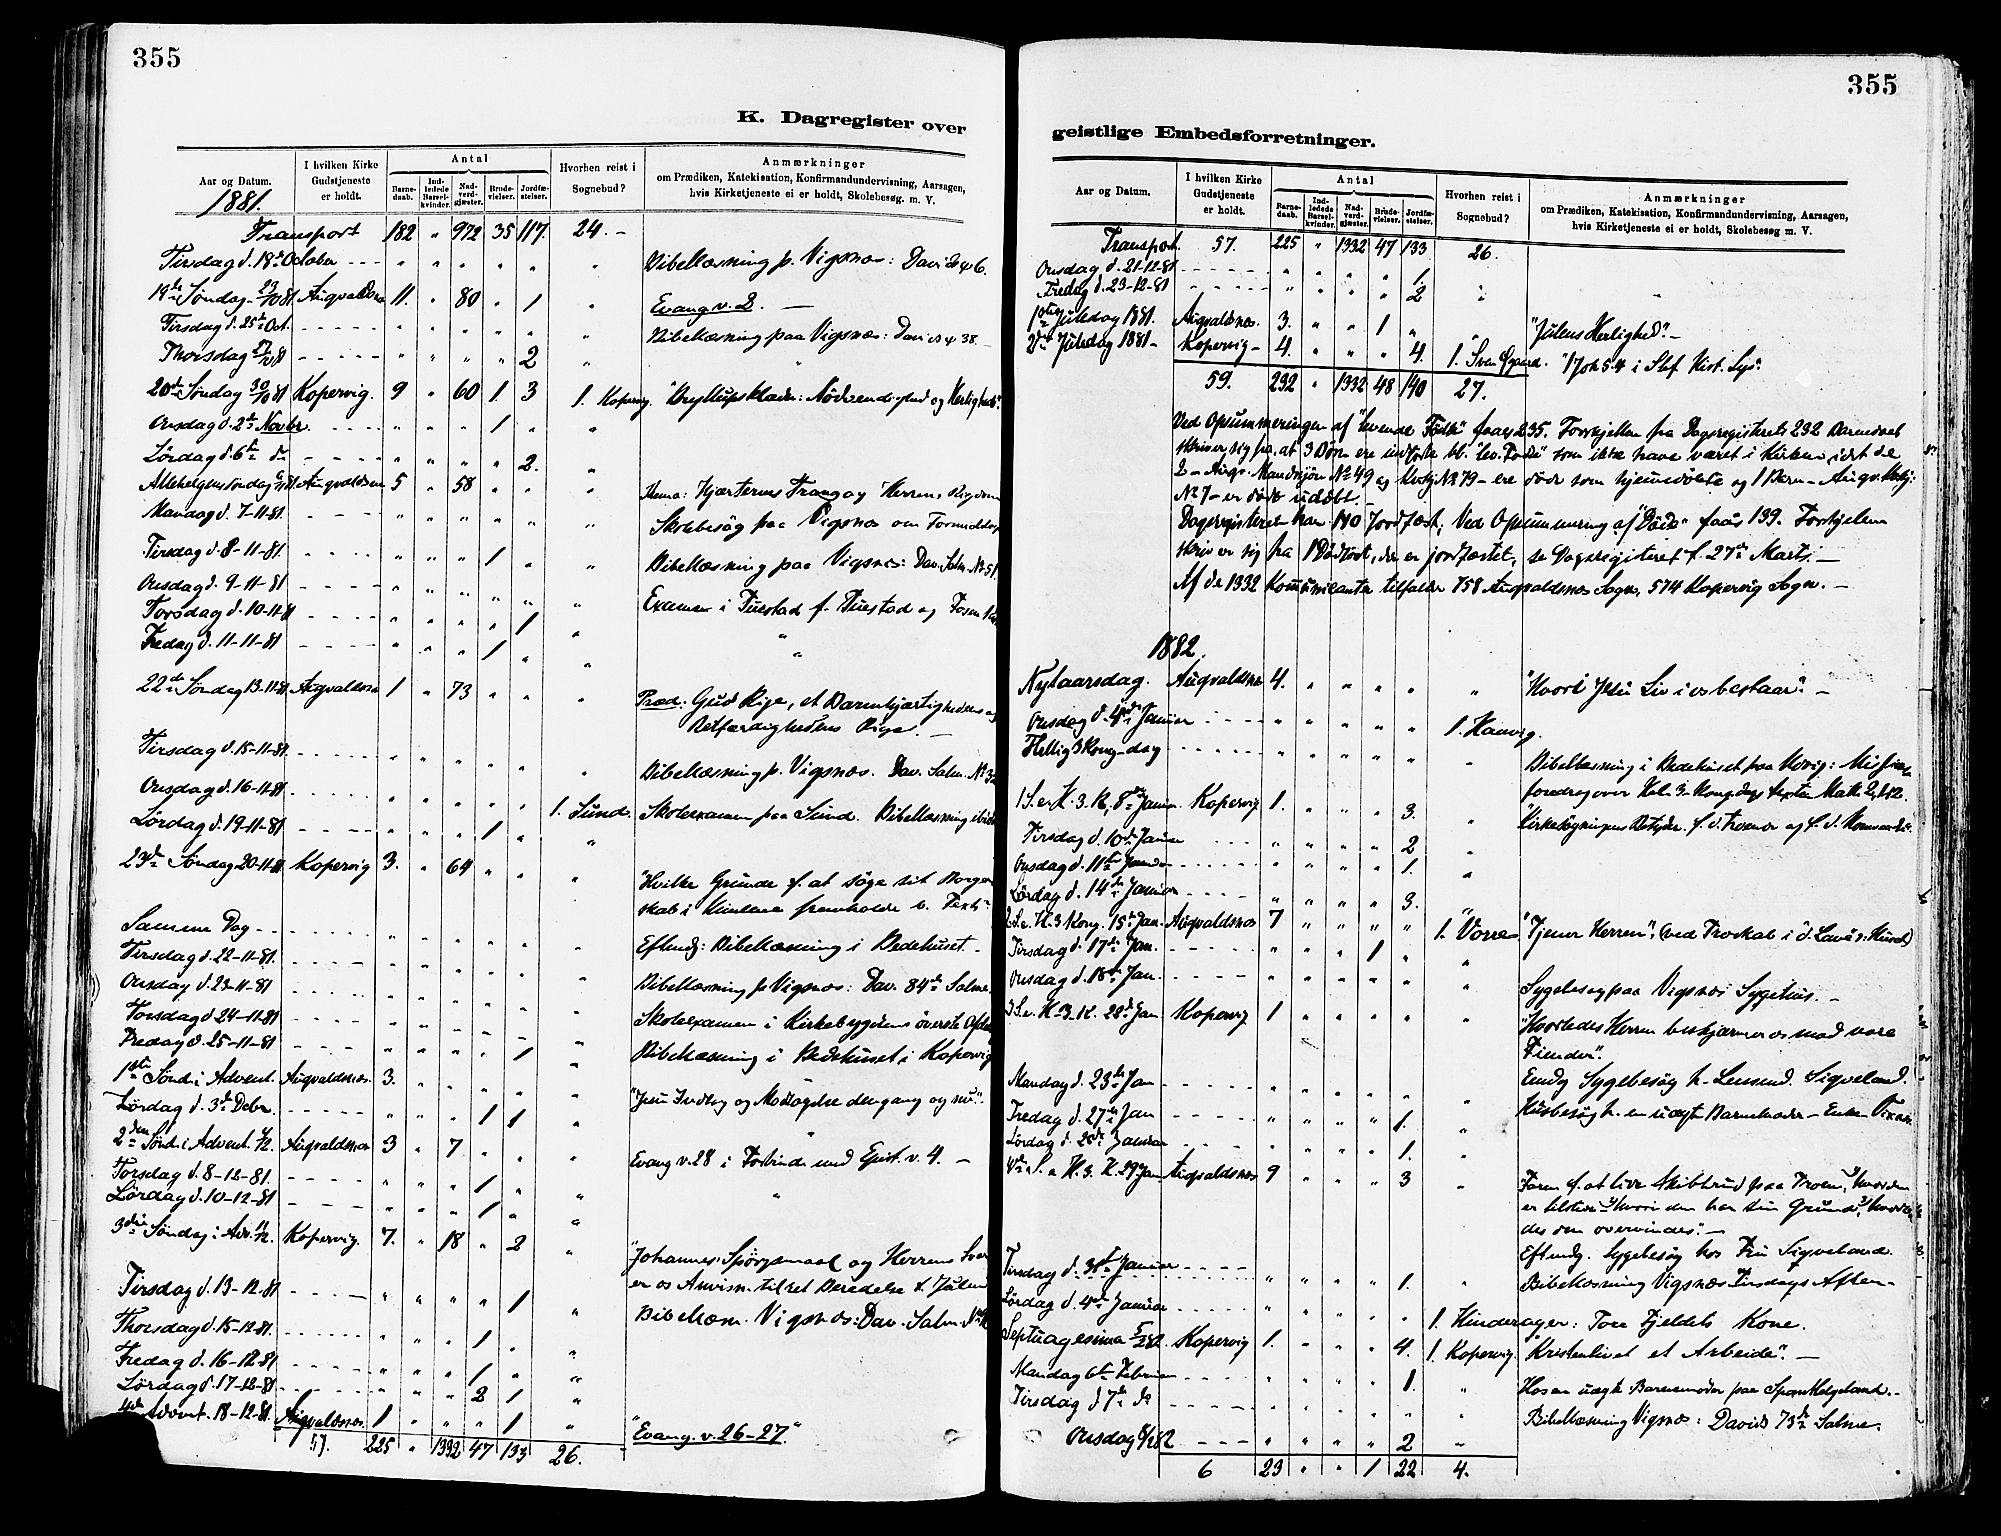 355
K. Dagregister over
Aar og Datum.
I hvilken Kirke Gudstjeneste er holdt.
Antal
Barnedaab.
Indledede Barselkvinder.
Nadverdgjæster.
Brudevielser.
Jordfæstelser.
Hvorhen reist i Sognebud?
Anmærkninger
om Prædiken, Katekisation, Konfirmandundervisning, Aarsagen,
hvis Kirketjeneste ei er holdt, Skolebesøg. m. V.
1881.
Transport 182 " 972 35 117. 24. -
Tirsdag d. 18de October - - - " " " " " " Bibellæsning p. Vigsnæs: Davids ψ 6.
19de Søndag 23/10 81 Augvaldsn 11. " 80 " 1 " Evang. v. 2. —
Tirsdag d. 25de Oct. - - - - - " " " " " " Bibellæsning paa Vigsnæs: Davids ψ 38. -
Thorsdag 27/10 81 - - - - - " " " " 2 "
20de Søndag 30/10 81 Kopervig. 9 " 60 1 3 1. Kopervig. "Bryllupsklæder: Nødvendighed og Herlighed".
Onsdag d. 2de Novbr. - - - - " " " 1 " "
Lördag d. 6te ds - - - - - " " " " 2. "
Allehelgenssøndag 6/11 81 Augvaldsn 5 " 58 " " " Thema: Hjærternes Trang og Herrens Rigdom
Mandag d. 7-11-81. - - - " " " " " " Skolebesög paa Vigsnæs om Formiddag
Tirsdag d. 8-11-81. - - - - " " " 1 " " Bibellæsning paa Vigsnæs: Dav. Salm. No 51.
Onsdag d. 9-11-81 - - - - " " " " " " Examen i
Torsdag d. 10-11-81 - - - - " " " " 1 "
Fredag d. 11-11-81 - - - - " " " 1 " " "
22de Søndag 13-11-81 Augvaldsn 1 " 73 " " " Præd: Guds Rige, et Barmhjærtighedens og
Retfærdighedens Rige. —
Tirsdag d. 15-11-81. - - - - " " " " " " Bibellæsning p. Vigsnæs. Dav. Salm. No 32
Onsdag d. 16-11-81 - - - - " " " " " 1. Sund. Skoleexamen paa Sund. Bibellæsning
Lördag d. 19-11-81 - - - - " " " 1 " "
23de Søndag 20-11-81 Kopervig 3. " 64 " " " "Hvilke Grunde f. at søge sit Borger
skab i Himlene fremholder v. Text"
Samme Dag - - - - - " " " " " " Eftmdg: Bibellæsning i Bedehuset. -
Tirsdag d. 22-11-81. - - - - " " " " " " Bibellæsning p. Vigsnæs: Dav. 84de Salme.
Onsdag d. 23-11-81 - - - - " " " " " " Skoleexamen i Kirkebygdens överste
Torsdag d 24-11-81 - - - - " " " " " " Bibellæsning i Bedehuset i Kopervig
Fredag d. 25-11-81 - - - - " " " " 1 "
1ste Sönd. i Advent. Augvaldsnæs. 3. " " " " " "Jesu Indtog og Modtagelse dengang og nu". -
Lördag d. 3de Debr. - - - - " " " 1 1 " "
2den Sönd. i Advent. 4/12 Augvaldsnæs 3 " 7 " " " Evang v. 28 i Forbind. med Epist. v. 4. —
Torsdag d. 8-12-81. - - - - " " " 1 " "
Lördag d. 10-12-81 - - - - " " " 1 " " "
3die Söndag i Adv. 11/12 Kopervig. 7. " 18 " 2 " "Johannes: Spörgsmaal og Herrens Svar
er os Anvisn. til ret Beredelse t. Julen
Tirsdag d. 13-12-81 - - - - " " " " 1 " Bibellæsn. Vigsnæs: Dav. Salm.
Thorsdag d. 15-12-81. - - - - " " " 1 " "
Fredag d. 16-12-81 - - - - " " " 1 " "
Lördag d. 17-12-81 - - - - " " " 2 1 "
4de Advent. 18-12-81. Augvaldsnæs. 1 " " " 1 " "Evang. v. 26-27."
57. 225 " 1332 47 133 26.
355
geistlige Embedsforretninger.
Aar og Datum.
I hvilken Kirke Gudstjeneste er holdt.
Antal
Barnedaab.
Indledede Barselkvinder.
Nadverdgjæster.
Brudevielser.
Jordfæstelser.
Hvorhen reist i Sognebud?
Anmærkninger
om Prædiken, Katekisation, Konfirmandundervisning, Aarsagen,
hvis Kirketjeneste ei er holdt, Skolebesøg m. V.
Transport. 57. 225 " 1332 47 133 26.
Onsdag d. 21-12-81 - - - - " " " " 1. "
Fredag d. 23-12-81 - - - - " " " " 2 " "
1ste Juledag 1881. Augvaldsnæs. 3. " " 1 " " "Julens Herlighed". -
2den Juledag 1881 - Kopervig - 4. " " " 4. 1. Sven "1 Joh 5.4 i Stef. Hist. Lys".
59. 232 " 1332 48 140 27.
Ved Opsummeringen af "levende Födte" faaes 235. Forskjellen fra Dagsregisterets 232 Barnedaab
skriver sig fra, at 3 Börn ere indförte bl. "lev. Födte" som ikke have været i Kirken, idet de
2 - Augv. Mandkjön No 49 og Kvkj. No 79 - ere döde som hjemmedöbte og 1 Barn - Augv. Kvkj:
No 7 - er död udöbt. -
Dagsregisteret har 140 Jordfæst; Ved Opsummering af "Döde" faaes 139. Forskjellen
skriver sig fra 1 Dödfödt, der er jordfæstet, se Dagsregisteret f. 27de Marts. -
Af de 1332 Kommunicanter tilfalder 758 Augvaldsnæs Sogn, 574 Kopervig Sogn. -
1882.
Nytaarsdag. Augvaldsnæs 4. " " " " " "Hvori Jesu Liv i os bestaar". -
Onsdag d. 4de Januar - - - " " " " " 1. Haavig.
Hellig 3 Kong-dag - - - - " " " " " " Bibellæsning i Bedehuset paa Kovig: Missions
foredrag over Hel. 3 Kong. dags texten Math 2, 1-12.
1 S. e. H. 3. K. 8de Januar Kopervig 1. " " " 3. " "Kirkesögningens Betydn. f. d. troende og f. d.
Tirsdag d. 10de Januar - - - " " " " 2 "
Onsdag d. 11te Januar - - - " " " " 1. "
Lördag d. 14de Januar - - - " " " " 3. "
2 S. e. H. 3 Kong. 15de Jan. Augvaldsnæs 7 " " " " 1. Vorre "Tjener Herren",
Tirsdag d. 17de Jan. - - - - " " " 1 " "
Onsdag d. 18de Jan. - - - - " " " " " " Sygebesög paa Vigsnæs Sygehus. -
3 S. e. H. 3. K. 22de Jan Kopervig 1 " " " " " "Hvorledes Herren beskjærmer os mod vore
Fiender".
Mandag d. 23de Jan - - - - " " " " " " Emdg Sygebesög h. Lensmd. Sigveland.
Fredag d. 27de Jan - - - - " " " " 1. " Husbesög h. en uægte Barnemoder -
Lördag d. 28de Januar - - " " " " 1. "
4de S. e. H. 3. K. 29 Jan Augvaldsnæs 9 " " " 3 " "Faren f. at live Skibbrud paa Troen, hvordan
er tilstede - hvori den har sin Grund, hvorle-
des den overvindes". -
Eftmdg. Sygebesög hos Fru Sigveland.
Tirsdag d. 31te Januar - - - - " " " " 1. " Bibellæsning Vigsnæs Tirsdags Aften -
Lördag d. 4de Januar - - - - " " " " " 1. Hinderager: Tore Fjeldets Kone.
Septuagesima 5/2 82 Kopervig 1. " " " 4. 1. Kopervig. "Kristenlivet et Arbeide". -
Mandag 6te Februar " " " " 1. " Hos en uægt. Barnemoder paa Helgeland. -
Tirsdag d 7de ds " " " " " " Bibellæsning Vigsnæs: Davids 73de Salme.
Onsdag 8/2 82 - - - - " " " " 2 "
6 23 " " 1 22 4.